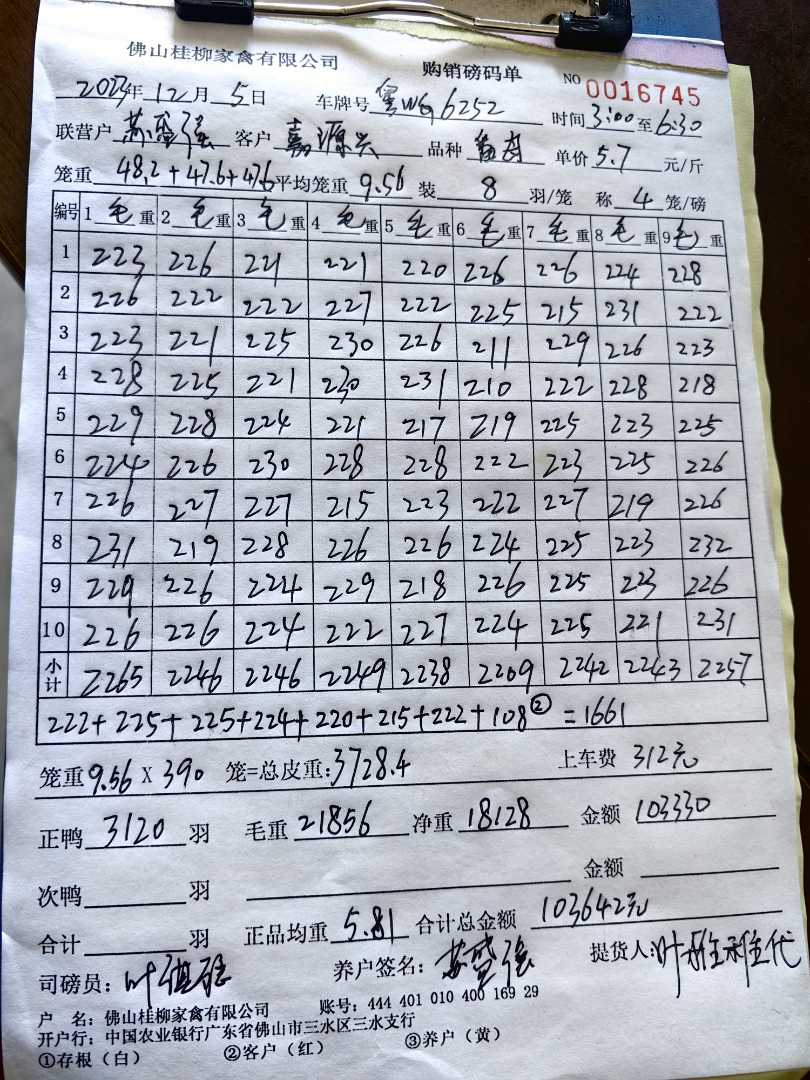 佛山桂柳家禽有限公司 购销磅码单 NO 0016745
2023年12月5日 车牌号 粤WG6252 时间3:00至6:30
联营户 苏盛强 客户 嘉源兴 品种 单价5.7元/斤
笼重 48.2+47.6+47.6 平均笼重 9.56 装 8 羽/笼 称 4 笼/磅
编号 1毛重 2毛重 3毛重 4毛重 5毛重 6毛重 7毛重 8毛重 9毛重
1 223 226 221 221 220 226 226 224 228
2 226 222 222 227 222 225 215 231 222
3 223 221 225 230 226 211 229 226 223
4 228 225 221 230 231 210 222 228 218
5 229 228 224 221 217 219 225 223 225
6 224 226 230 228 228 222 223 225 226
7 226 227 227 215 223 222 227 219 226
8 231 219 228 226 226 224 225 223 232
9 229 226 224 229 218 226 225 223 226
10 226 226 224 222 227 224 225 221 231
小计 2265 2246 2246 2249 2238 2209 2242 2243 2257
222+225+225+224+220+215+222+108② =1661
笼重9.56X390 笼=总皮重:3728.4 上车费 312元
正鸭 3120 羽 毛重 21856 净重 18128 金额 103330
次鸭 羽 金额
合计 羽 正品均重 5.81 合计总金额 103642元
司磅员: 叶 养户签名: 苏盛强 提货人: 叶 代
户 名: 佛山桂柳家禽有限公司 账号: 444 401 010 400 169 29
开户行: 中国农业银行广东省佛山市三水区三水支行
①存根(白) ②客户(红) ③养户(黄)